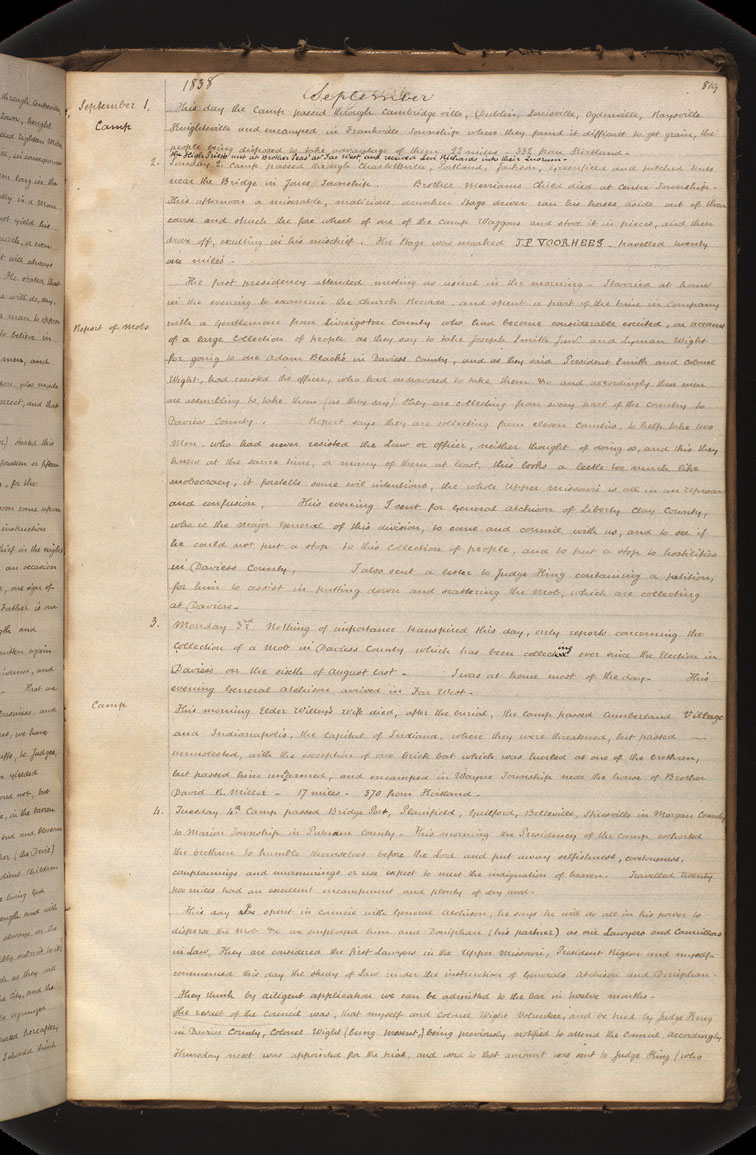 1838
September
819
September 1.
Camp
This day the Camp passed through Cambridgeville, Dublin, Louisville, Ogdenville, Raysville
Knightsville and encamped in Franklville Township where they found it difficult to get grain, the
people being disposed to take advantage of them 22 miles - 332 from Kirtland.
The High Priests met at Brother Teas' at Far West, and received Levi Richards into their Quorum -
2.
Sunday 2. Camp passed through Charlotteville, Portland, Jackson, Greenfield and pitched tents
near the Bridge in Jones Township. Brother Merriams Child died at Centre Township.
This afternoon a miserable, malicious, drunken Stage driver ran his horses aside out of their
course and struck the fore wheel of one of the Camp Waggons and stove it in pieces, and then
drove off, exulting in his mischief. The Stage was marked J.P. VOORHEES - travelled twenty
one miles -
The first presidency attended meeting as usual in the morning - I tarried at home
in the evening to examine the Church Records, and spent a part of the time in company
with a Gentleman from Livingston County who had become considerable excited, on account
Report of Mobs
of a large collection of people, as they say to take Joseph Smith Junr. and Lyman Wight
for going to one Adam Black's in Daviess County, and as they said President Smith and Colonel
Wight, had resisted the officer, who had endeavored to take them &c and accordingly these men
are assembling to take them (as they say) they are collecting from every part of the country to
Daviess County. Report says they are collecting from eleven counties, to help take two
Men, who had never resisted the Law or officer, neither thought of doing so, and this they
knew at the same time, or many of them at least, this looks a leetle too much like
mobocracy, it foretells some evil intentions, the whole Upper Missouri is all in an uproar
and confusion. This evening I sent for General Atchison of Liberty Clay County,
who is the Major General of this division, to come and council with us, and to see if
he could not put a stop to this collection of people, and to put a stop to hostilities
in Daviess County. I also sent a letter to Judge King containing a petition,
for him to assist in putting down and scattering the Mob, which are collecting
at Daviess -
3.
Monday 3rd. Nothing of importance transpired this day, only reports concerning the
collection of a mob in Daviess County which has been collecting ever since the Election in
Daviess on the sixth of August last - I was at home most of the day - This
evening General Atchison arrived in Far West -
Camp
This morning Elder Willey's wife died, after the burial, the camp passed Cumberland Village
and Indianapolis, the Capitol of Indiana, where they were threatened, but passed
unmolested, with the exception of one brick bat which was hurled at one of the brethren,
but passed him unharmed, and encamped in Wayne Township near the house of Brother
David K. Miller - 17 miles - 370 from Kirtland -
4.
Tuesday 4th. Camp passed Bridge Port, Plainfield, Guilford, Belleville, Stilesville in Morgan County
to Marion Township in Putnam County - This morning the Presidency of the Camp exhorted
the brethren to humble themselves before the Lord and put away selfishness, covetousness,
complainings and murmurings or else expect to meet the indignation of heaven. Travelled twenty
two miles had an excellent encampment and plenty of dry wood -
This day I spent in council with General Atchison, he says he will do all in his power to
disperse the Mob &c we employed him and Doniphan (his partner) as our Lawyers and Councillors
in Law, They are considered the first Lawyers in the Upper Missouri, President Rigdon and myself
commenced this day the study of Law, under the instruction of Generals Atchison and Doniphan -
They think by diligent application we can be admitted to the bar in twelve months -
The result of the Council was, that myself and Colonel Wight Volunteer, and be tried by Judge King
in Daviess County, Colonel Wight (being present,) being previously notified to attend the Council, accordingly
Thursday next was appointed for the trial, and word to that amount was sent to Judge King (who